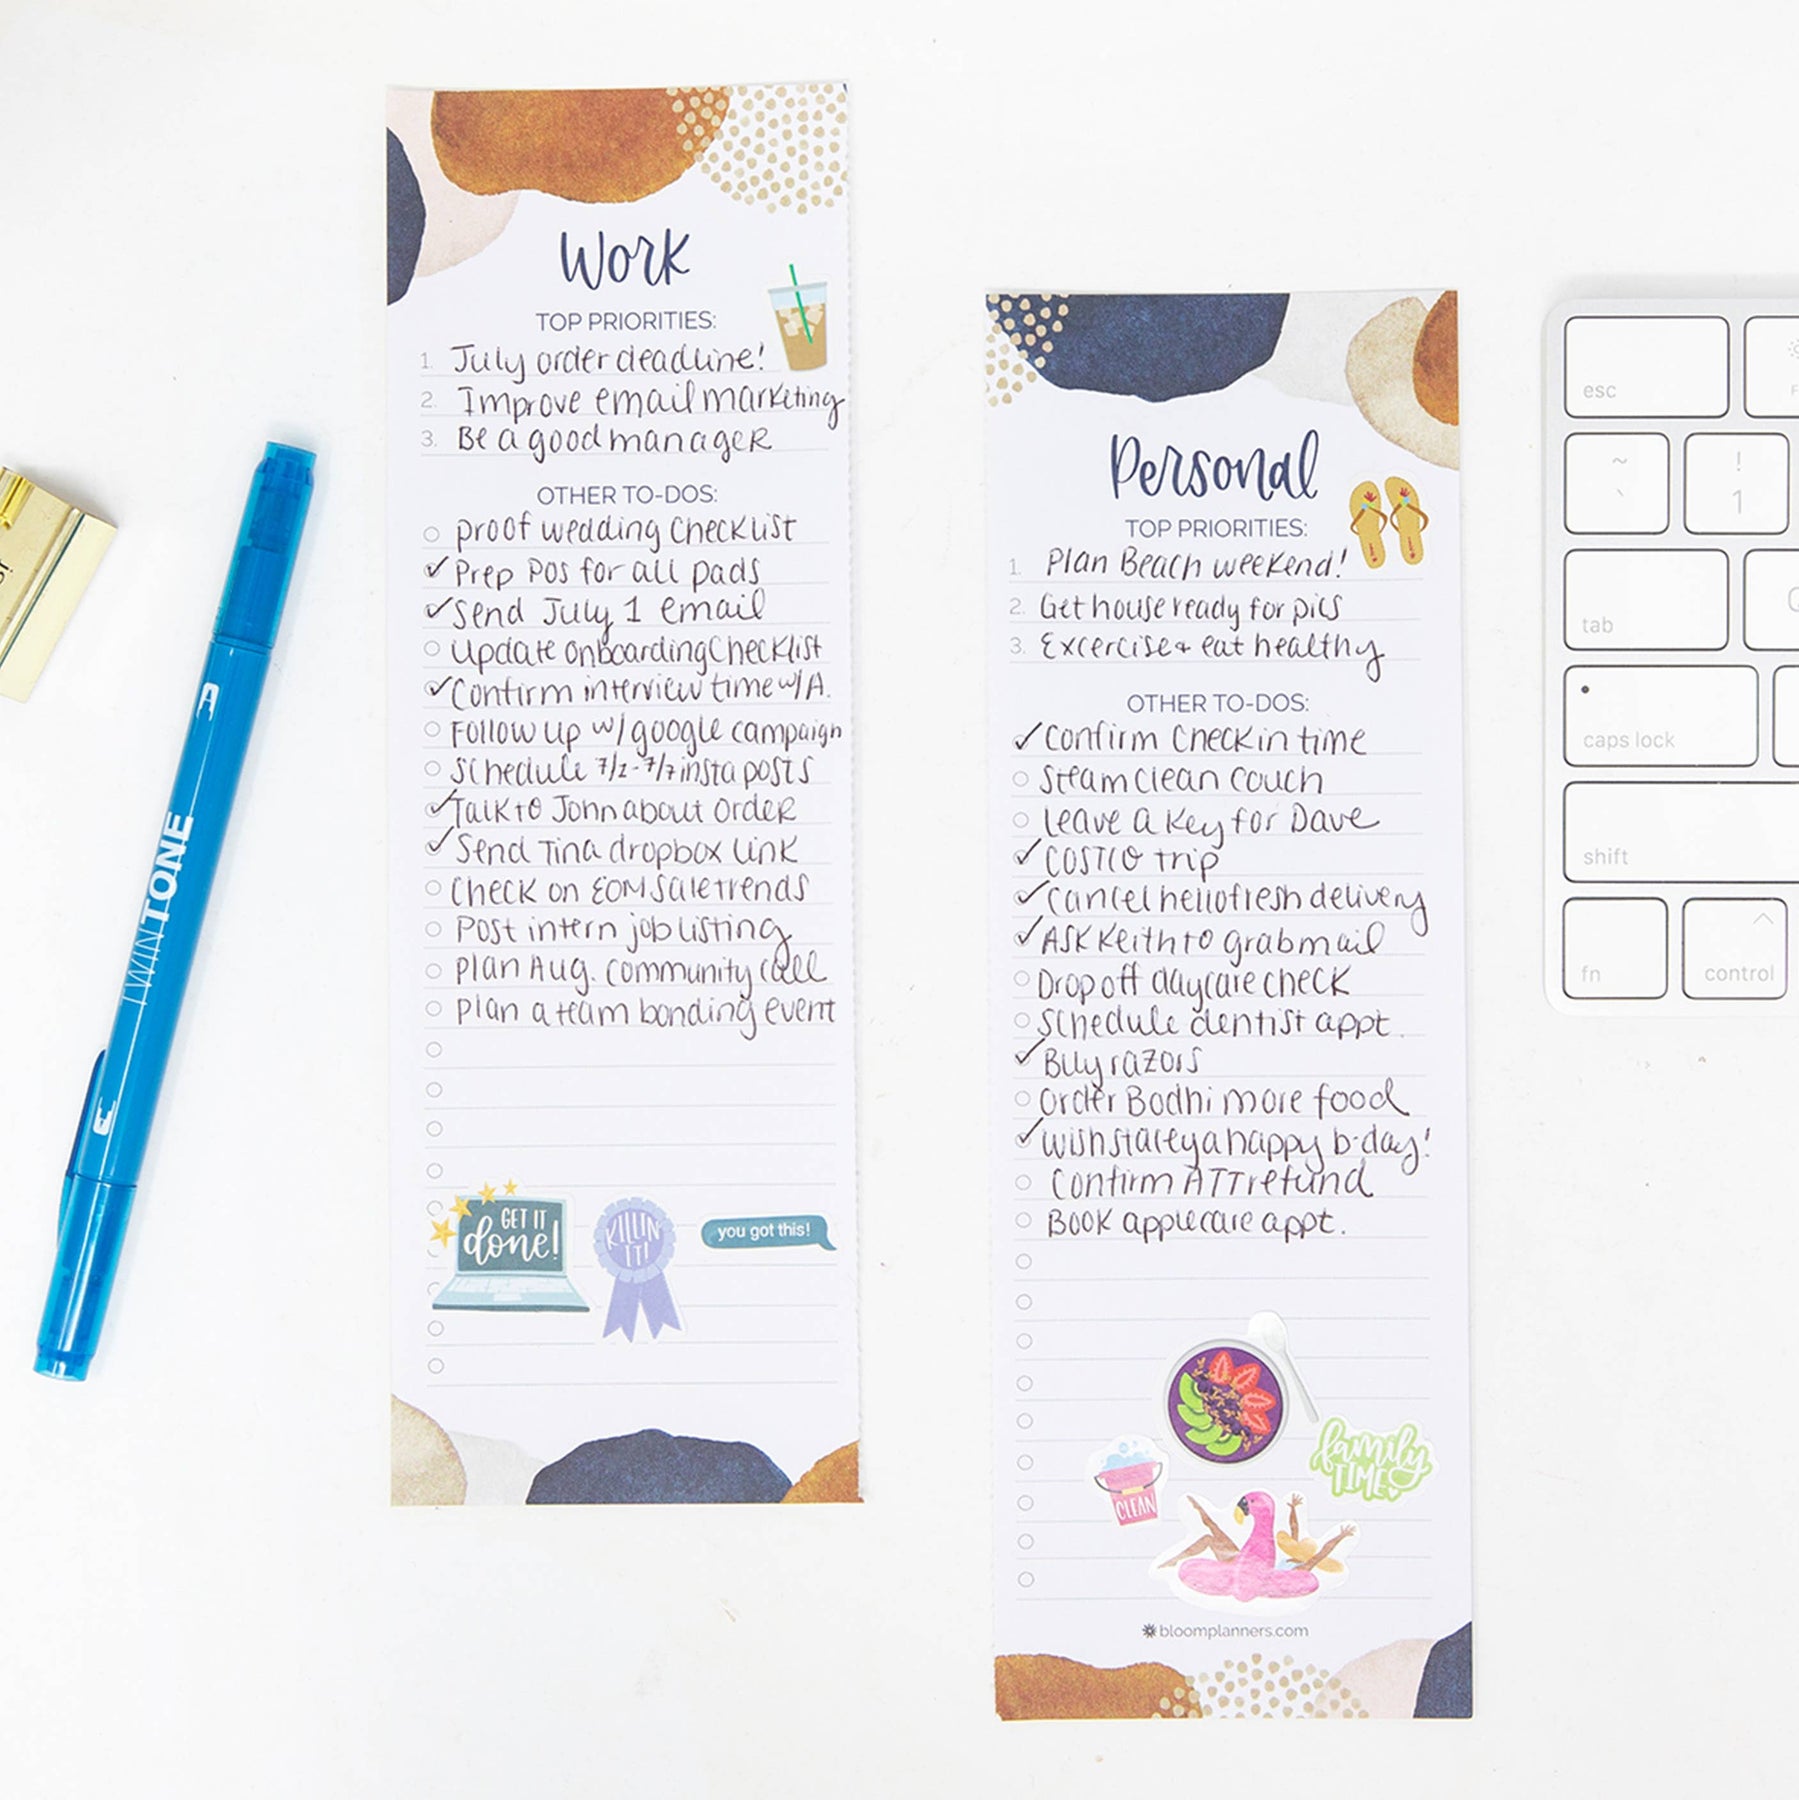 Work
TOP PRIORITIES:
1. July order deadline!
2. Improve email marketing
3. Be a good manager
OTHER TO-DOS:
proof wedding checklist
Prep POs for all pads
Send July 1 email
Update onboarding checklist
Confirm interview time w/A.
Follow up w/ google campaign
Schedule 7/2-7/7 insta posts
Talk to John about order
Send Tina dropbox link
Check on EOM sale trends
Post intern job listing
Plan Aug. community call
plan a team bonding event
GET IT
done!
KILLIN
IT!
you got this!
Personal
TOP PRIORITIES:
1. Plan Beach weekend!
2. Get house ready for pics
3. Excercise + eat healthy
OTHER TO-DOS:
Confirm check in time
Steam clean couch
Leave a key for Dave
COSTCO trip
Cancel hellofresh delivery
ASK Keith to grab mail
Drop off daycare check
Schedule dentist appt.
Buy razors
Order Bodhi more food
Wish stacey a happy b-day!
Confirm ATT refund
BOOK applecare appt.
family
TIME
CLEAN
bloomplanners.com
A
TWINTONE
E
esc
~
`
!
1
tab
caps lock
shift
fn
control